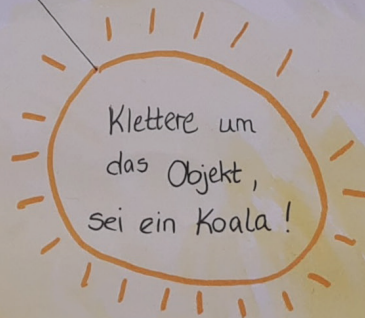 Klettere um
das Objekt,
sei ein Koala!